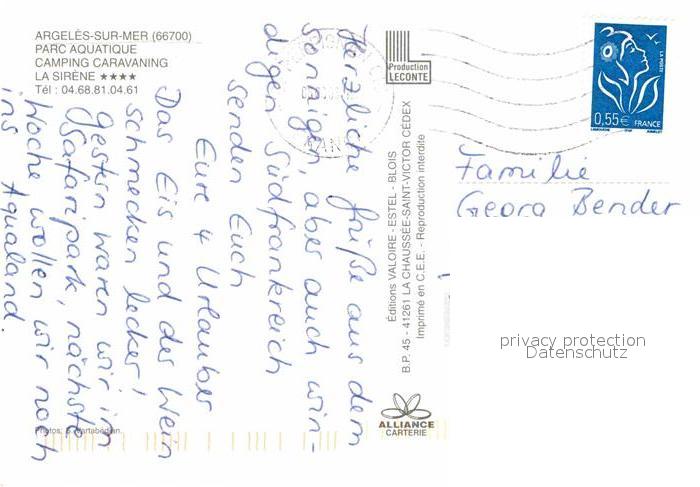 ARGELÈS-SUR-MER (66700)
PARC AQUATIQUE
CAMPING CARAVANING
LA SIRÈNE ★★★★
Tél : 04.68.81.04.61
Herzliche Grüße aus dem
sonnigen, aber auch win-
digen Südfrankreich
senden Euch
Eure 4 Urlauber
Das Eis und der Wein
schmecken lecker!
Gestern waren wir im
Safaripark, nächste
Woche wollen wir noch
ins Aqualand.
Photos:
Production
LECONTE
Éditions VALOIRE - ESTEL - BLOIS
B.P. 45 - 41261 LA CHAUSSÉE-SAINT-VICTOR CÉDEX
Imprimé en C.E.E. - Reproduction interdite
ALLIANCE
CARTERIE
LA POSTE
0,55€ FRANCE
Familie
Georg Bender
privacy protection
Datenschutz